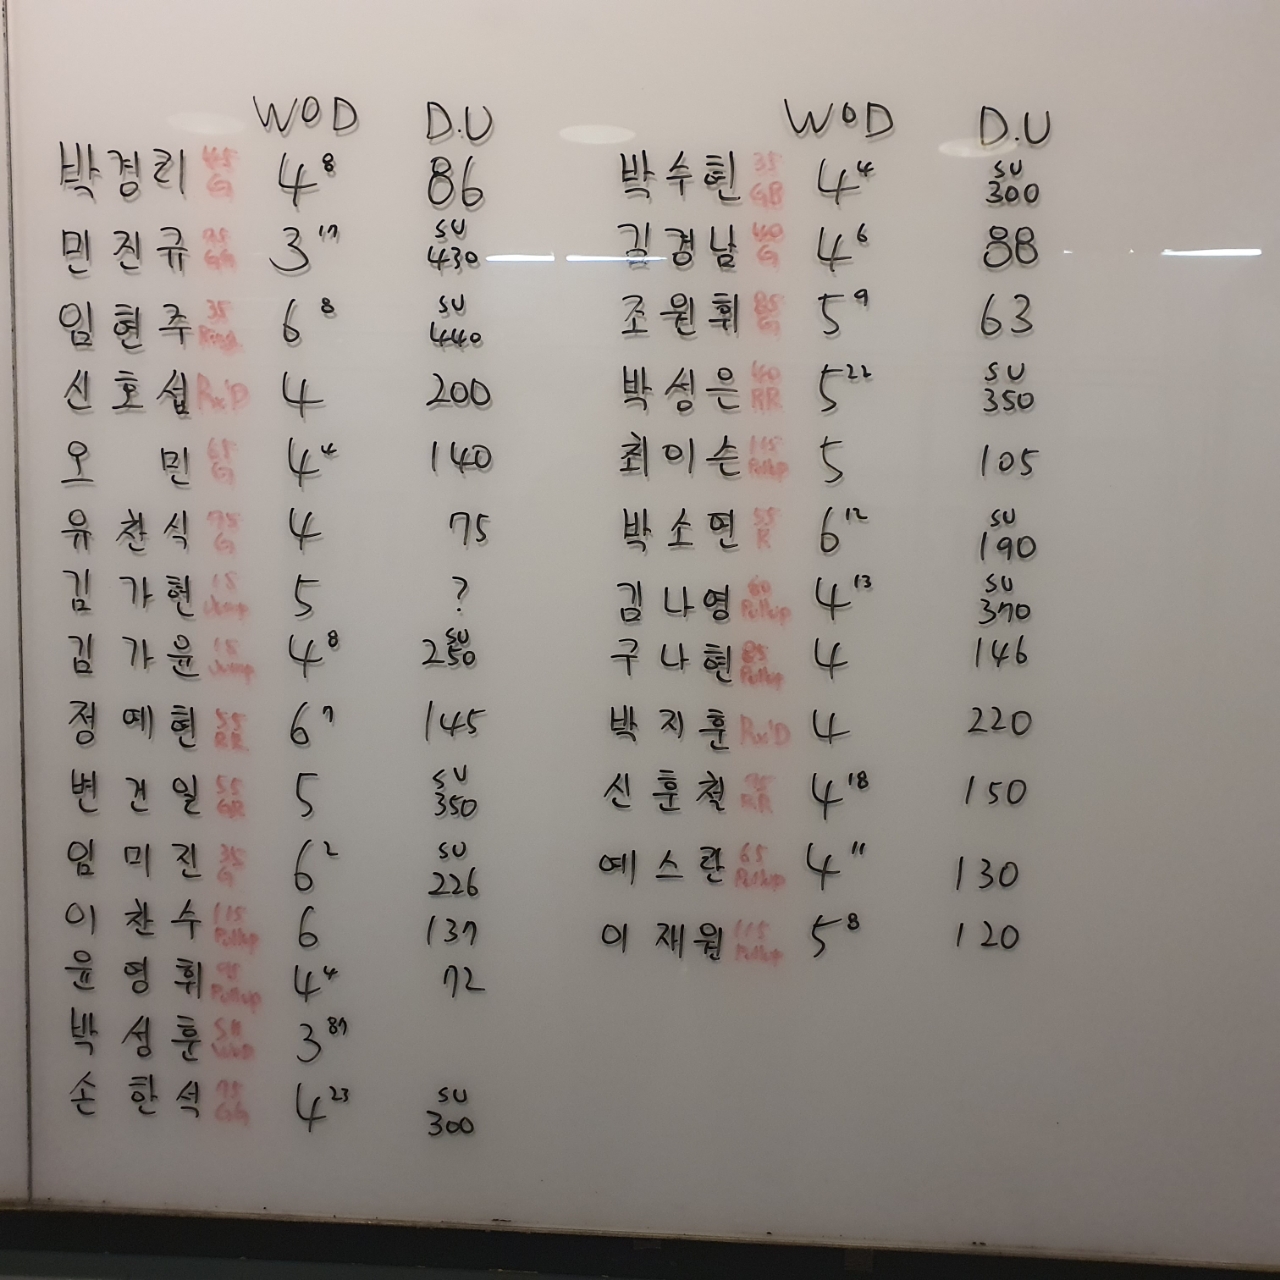 WOD D.U
박경리 45 G 4 8 86
민진규 95 3 17 SU 430
임현주 35 Ring 6 8 SU 440
신호섭 Rx'D 4 200
오 민 65 G 4 4 140
유찬식 75 G 4 75
김가현 15 Jump 5 ?
김가윤 15 Jump 4 8 SU 250
정예현 55 RR 6 7 145
변건일 55 GR 5 SU 350
임미진 35 G 6 2 SU 226
이찬수 115 Pullup 6 137
윤영휘 95 Pullup 4 4 72
박성훈 3 87
손한석 75 4 23 SU 300
WOD D.U
박수현 35 GB 4 4 SU 300
김경남 40 G 4 6 88
조원휘 85 G 5 9 63
박성은 40 RR 5 22 SU 350
최이슨 115 Pullup 5 105
박소연 55 R 6 12 SU 190
김나영 60 Pullup 4 13 SU 370
구나현 85 Pullup 4 146
박지훈 Rx'D 4 220
신훈철 95 RR 4 18 150
예스란 65 Pullup 4 11 130
이재원 115 Pullup 5 8 120